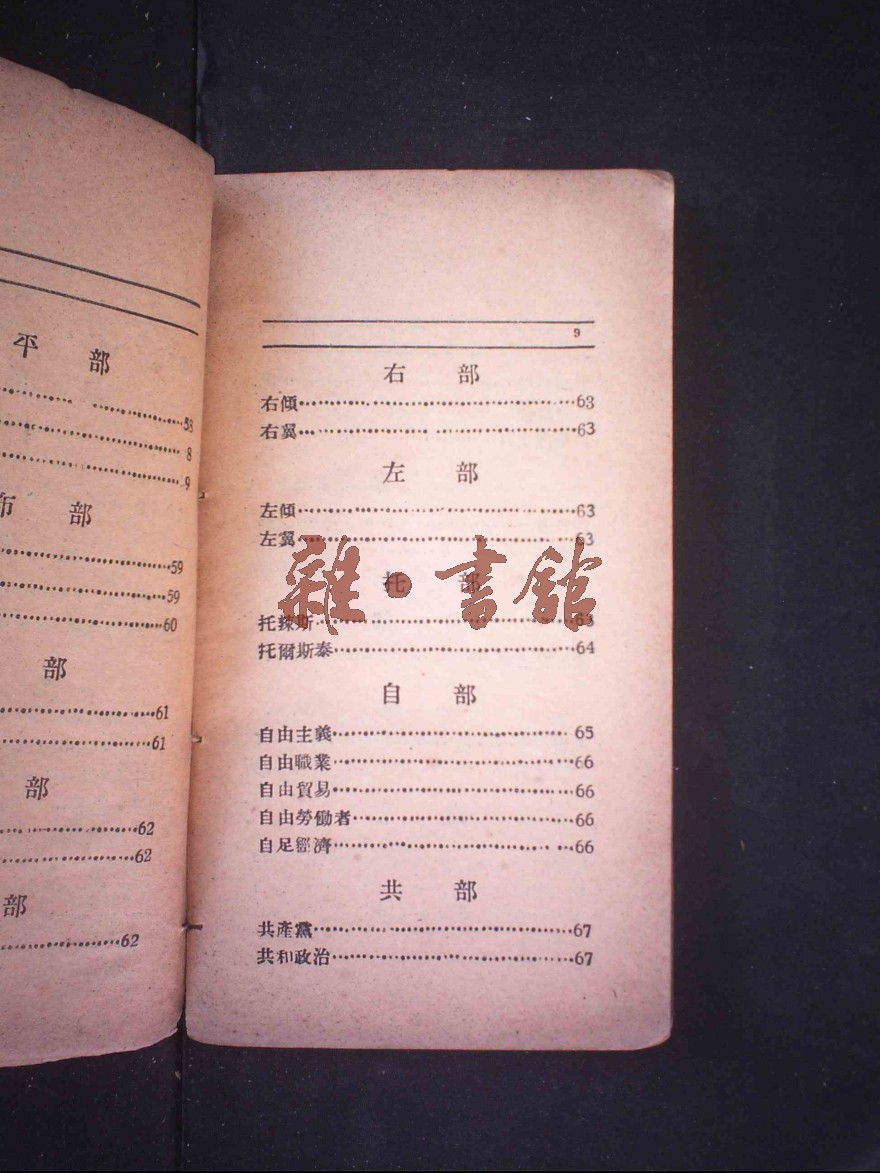 平 部
58
8
9
布 部
59
59
60
部
61
61
部
62
62
部
62
9
右 部
右傾63
右翼63
左 部
左傾63
左翼63
托 部
托辣斯63
托爾斯泰64
自 部
自由主義65
自由職業66
自由貿易66
自由勞働者66
自足經濟66
共 部
共產黨67
共和政治67
雜·書館